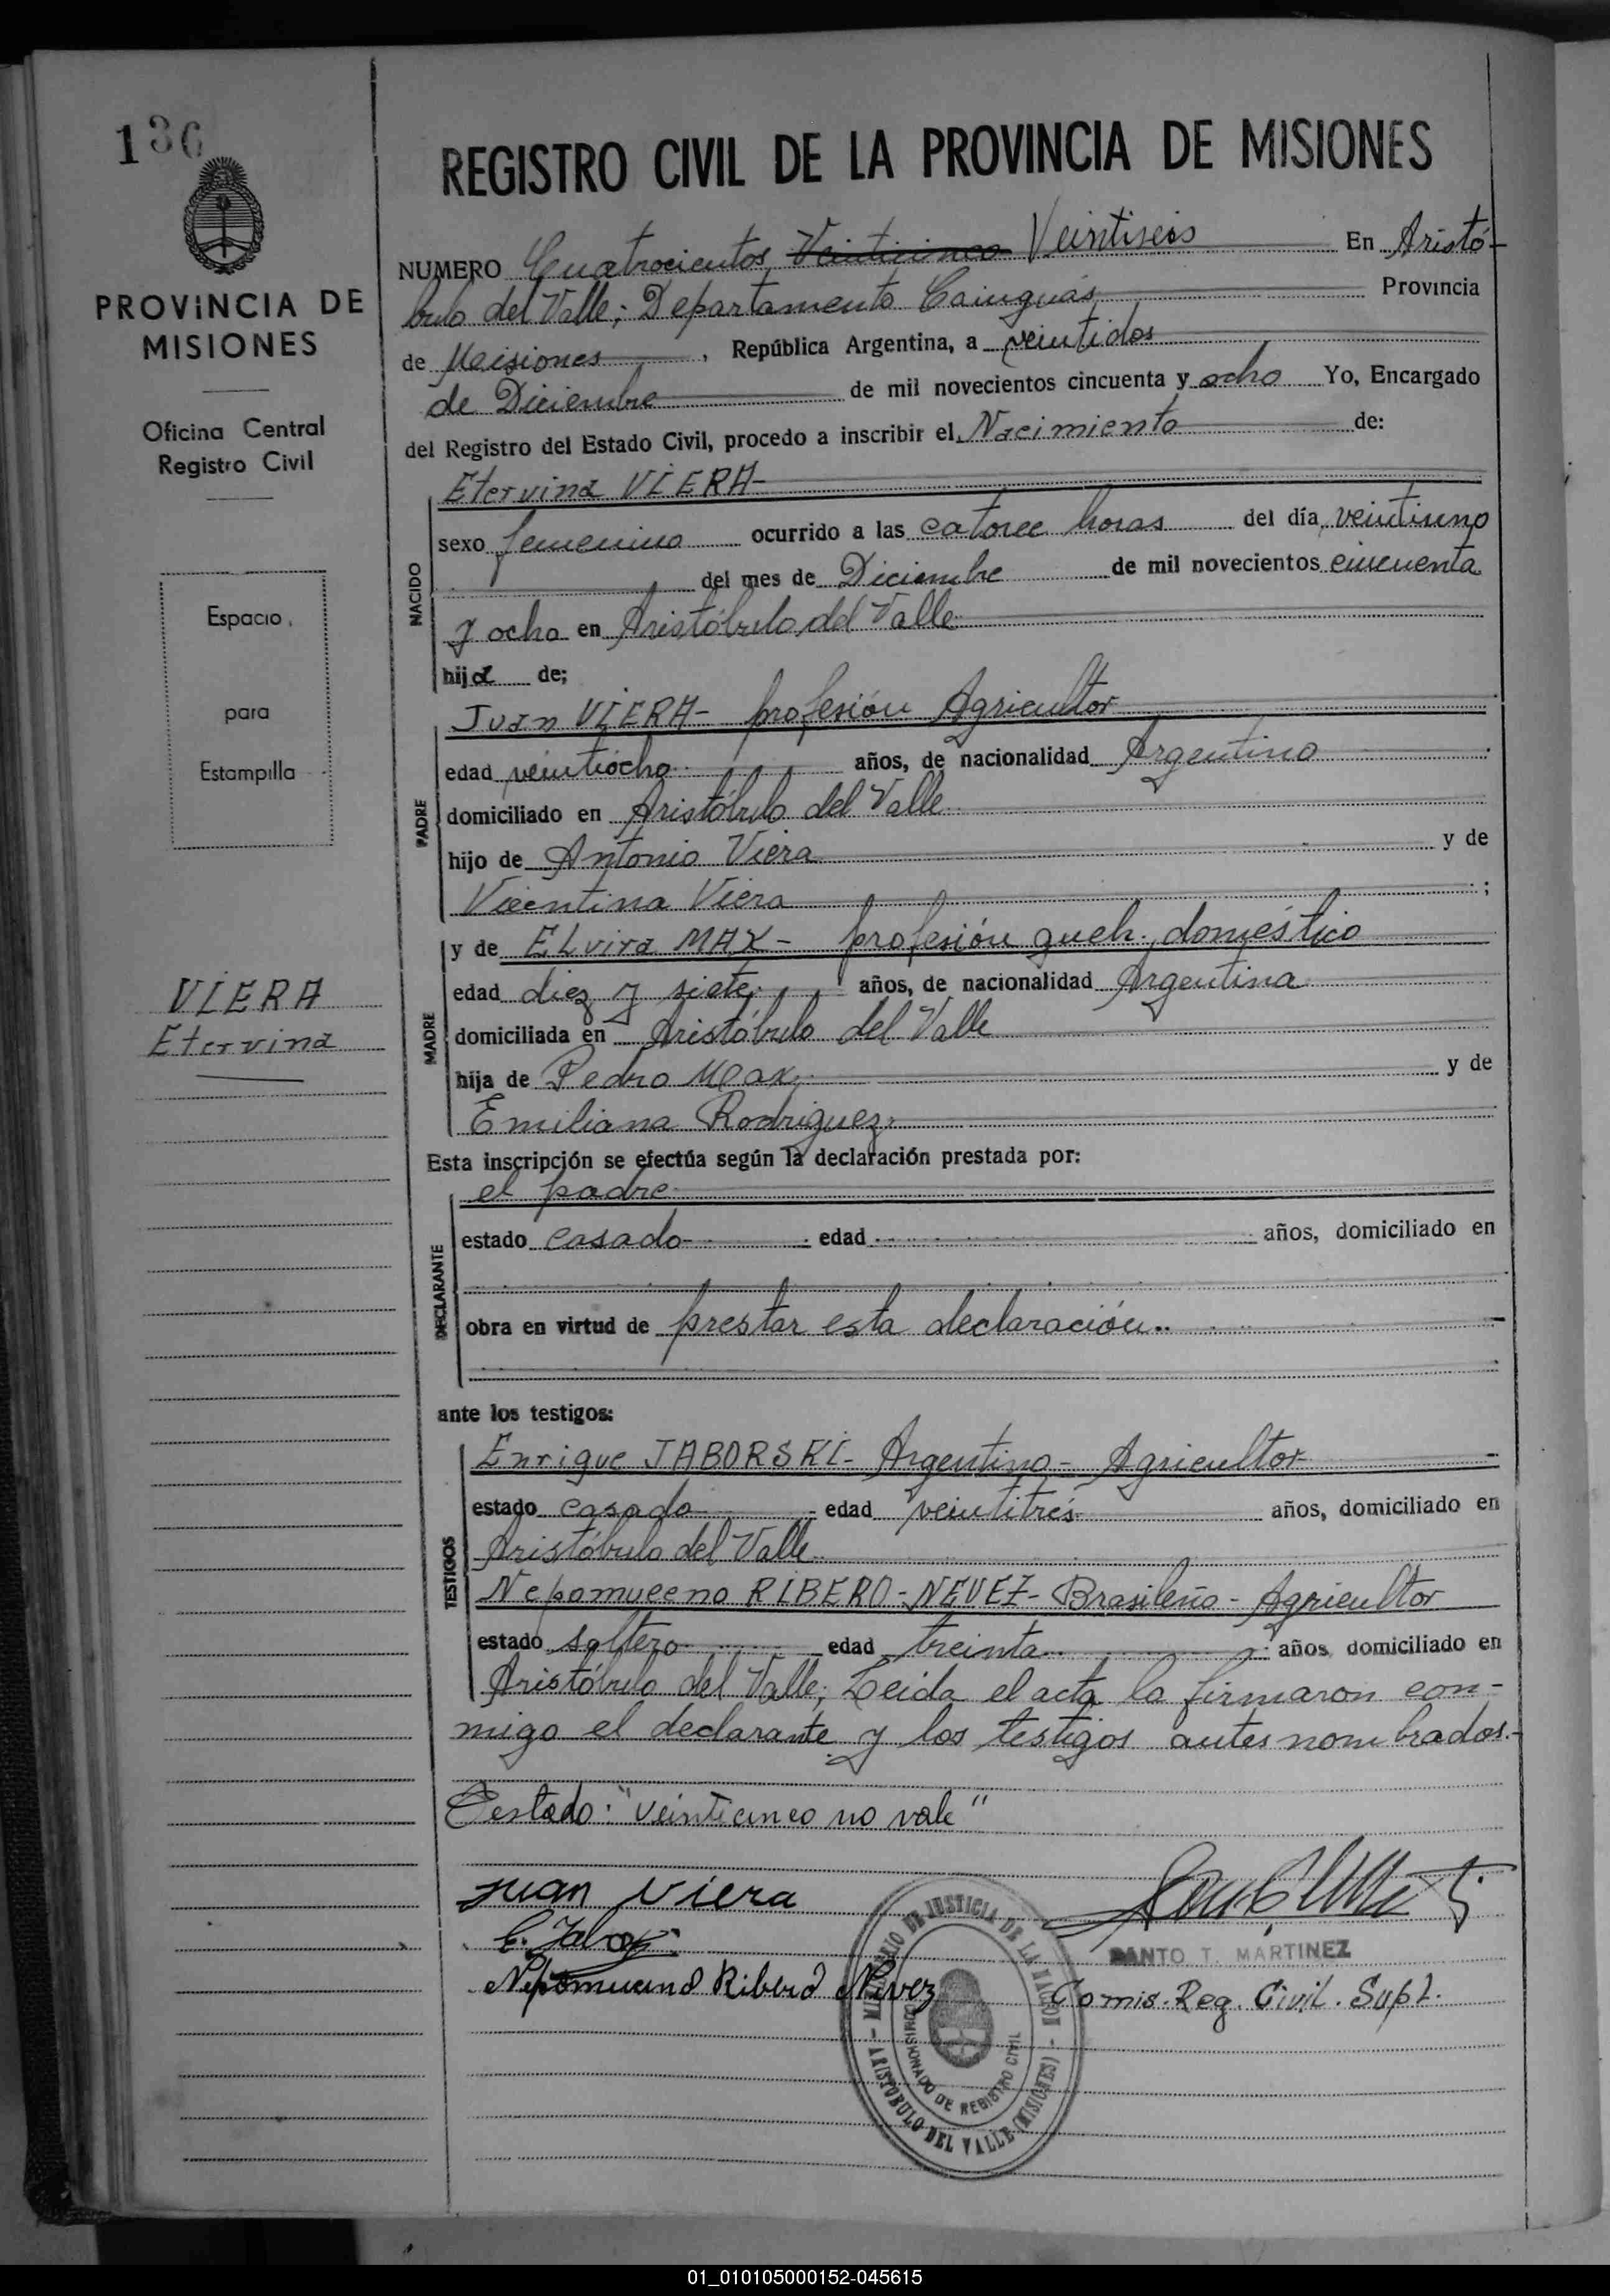 136
REGISTRO CIVIL DE LA PROVINCIA DE MISIONES
PROVINCIA DE
MISIONES
Oficina Central
Registro Civil
Espacio
para
Estampilla
VIERA
Etervina
NUMERO Cuatrocientos Veinticinco Veintiseis En Aristó-
bulo del Valle; Departamento Cainguás Provincia
de Misiones, República Argentina, a veintidos
de Diciembre de mil novecientos cincuenta y ocho Yo, Encargado
del Registro del Estado Civil, procedo a inscribir el Nacimiento de:
Etervina VIERA-
NACIDO
sexo femenino ocurrido a las catorce horas del día veintiuno
del mes de Diciembre de mil novecientos cincuenta
y ocho en Aristóbulo del Valle
hija de;
Juan VIERA- profesión Agricultor
PADRE
edad veintiocho años, de nacionalidad Argentino
domiciliado en Aristóbulo del Valle
hijo de Antonio Viera y de
Vicentina Viera ;
y de ELvira MAX- profesión queh. doméstico
MADRE
edad diez y siete, años, de nacionalidad Argentina
domiciliada en Aristóbulo del Valle
hija de Pedro Max, y de
Emiliana Rodriguez.
Esta inscripción se efectúa según la declaración prestada por:
el padre
DECLARANTE
estado casado- edad años, domiciliado en
obra en virtud de prestar esta declaración..
ante los testigos:
TESTIGOS
Enrique JABORSKI- Argentino- Agricultor
estado casado edad veintitrés años, domiciliado en
Aristóbulo del Valle
Nepomuceno RIBERO-NEVEZ- Brasileño- Agricultor
estado soltero edad treinta años, domiciliado en
Aristóbulo del Valle; Leida el acta la firmaron con-
migo el declarante y los testigos antes nombrados.-
Testado: "veinticinco no vale"
Juan Viera
Nepomuceno Ribero Nevez
SANTO T. MARTINEZ
Comis. Reg. Civil. Supl.
MINISTERIO DE JUSTICIA DE LA NACION
COMISIONADO DE REGISTRO CIVIL
- ARISTOBULO DEL VALLE (MISIONES) -
01_010105000152-045615